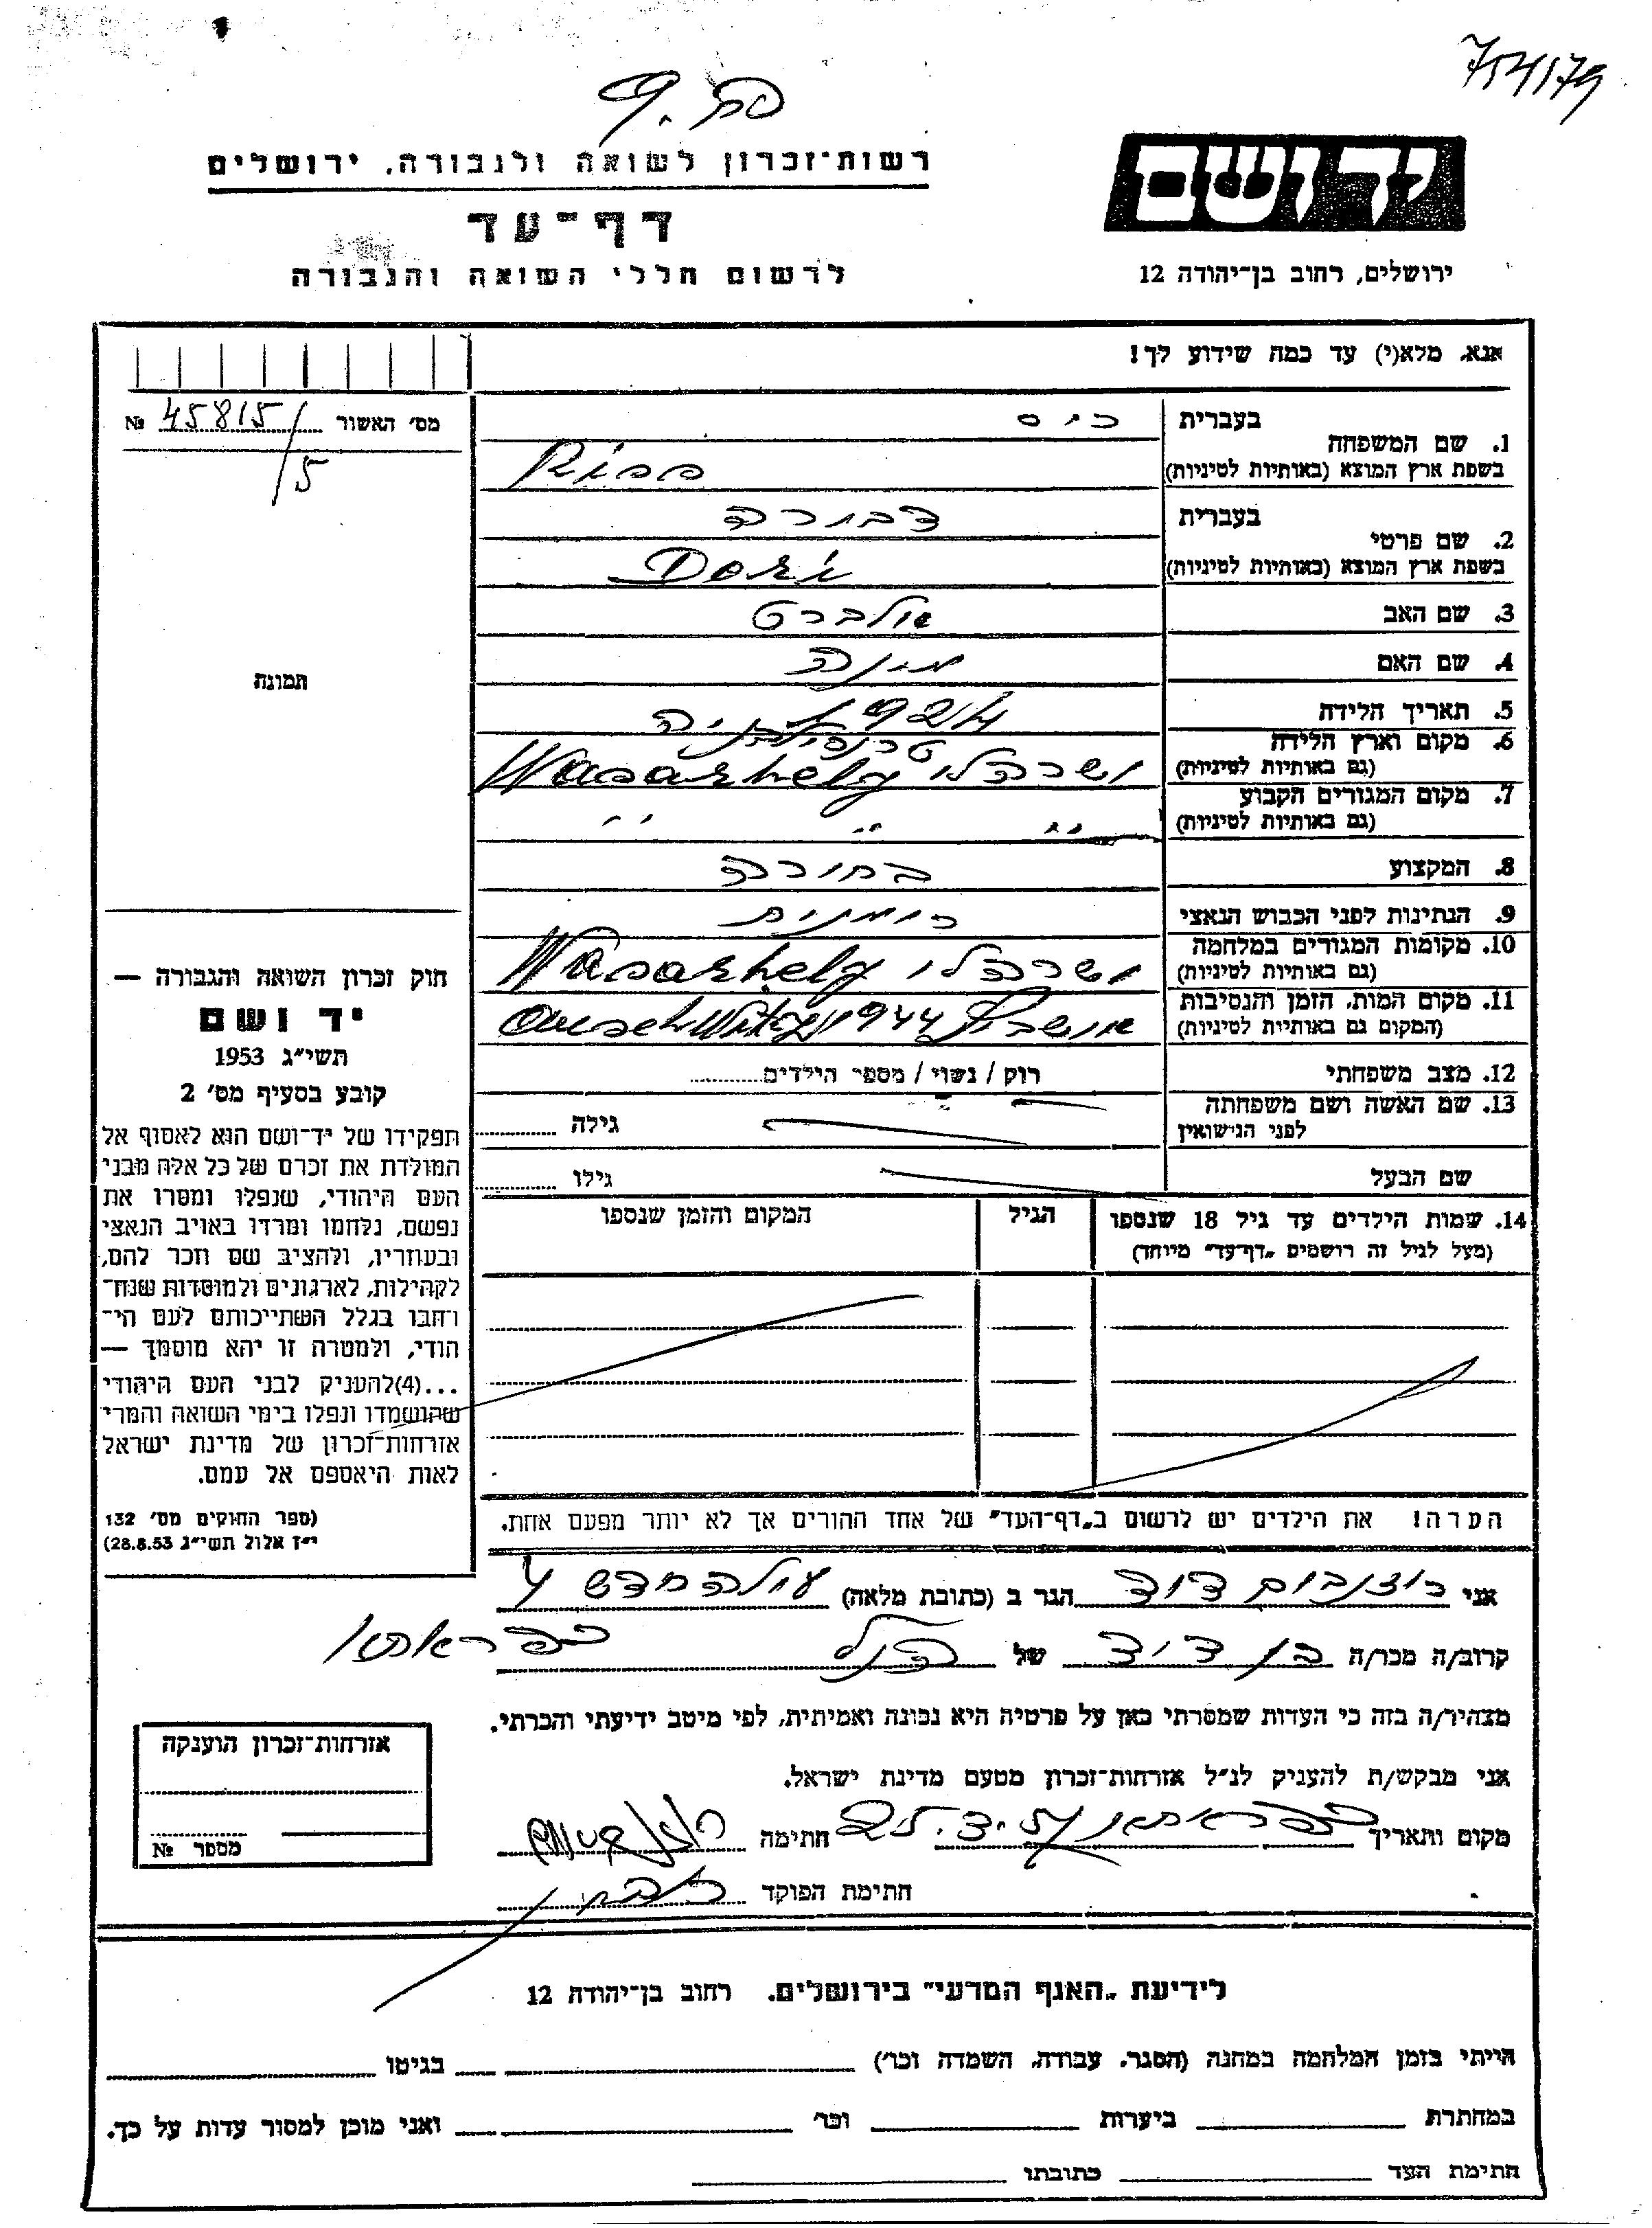 754179
רשות־זכרון לשואה ולגבורה, ירושלים
יד ושם
דף־עד
לרשום חללי השואה והגבורה
ירושלים, רחוב בן־יהודה 12
אנא, מלא(י) עד כמה שידוע לך!
מס׳ האשור 45815/5 №
1. שם המשפחה
בעברית ריס
בשפת ארץ המוצא (באותיות לטיניות) Riss
2. שם פרטי
בעברית דבורה
בשפת ארץ המוצא (באותיות לטיניות) Dori
3. שם האב אלברט
4. שם האם מינה
5. תאריך הלידה 1924
6. מקום וארץ הלידה טרנסילבניה
(גם באותיות לטיניות) ושרהלי Wasarhely
7. מקום המגורים הקבוע
(גם באותיות לטיניות) ״ ״ ״
8. המקצוע בחורה
9. הנתינות לפני הכבוש הנאצי רומנית
10. מקומות המגורים במלחמה
(גם באותיות לטיניות) ושרהלי Wasarhely
11. מקום המות, הזמן והנסיבות
(המקום גם באותיות לטיניות) אושביץ 1944 Auschwitz
12. מצב משפחתי רוק / נשוי / מספר הילדים
13. שם האשה ושם משפחתה
לפני הנישואין גילה
שם הבעל גילו
14. שמות הילדים עד גיל 18 שנספו הגיל המקום והזמן שנספו
(מעל לגיל זה רושמים „דף־עד״ מיוחד)
הערה! את הילדים יש לרשום ב„דף־העד״ של אחד ההורים אך לא יותר מפעם אחת.
תמונה
חוק זכרון השואה והגבורה —
יד ושם
תשי״ג 1953
קובע בסעיף מס׳ 2
תפקידו של יד־ושם הוא לאסוף אל
המולדת את זכרם של כל אלה מבני
העם היהודי, שנפלו ומסרו את
נפשם, נלחמו ומרדו באויב הנאצי
ובעוזריו, ולהציב שם וזכר להם,
לקהילות, לארגונים ולמוסדות שנח־
רחבו בגלל השתייכותם לעם הי־
הודי, ולמטרה זו יהא מוסמך —
...(4)להעניק לבני העם היהודי
שהושמדו ונפלו בימי השואה והמרי
אזרחות־זכרון של מדינת ישראל
לאות היאספם אל עמם.
(ספר החוקים מס׳ 132
י״ז אלול תשי״ג 28.8.53)
אני רוזנבוים דוד הגר ב (כתובת מלאה)
קרוב/ה מכר/ה בן דוד של הנ״ל
כפר אתא
מצהיר/ה בזה כי העדות שמסרתי כאן על פרטיה היא נכונה ואמיתית, לפי מיטב ידיעתי והכרתי.
אני מבקש/ת להעניק לנ״ל אזרחות־זכרון מטעם מדינת ישראל.
מקום ותאריך כפר אתא חתימה
חתימת הפוקד
אזרחות־זכרון הוענקה
מספר №
לידיעת „האגף המדעי״ בירושלים, רחוב בן־יהודה 12
הייתי בזמן המלחמה במחנה (הסגר, עבודה, השמדה וכו׳) בגיטו
במחתרת ביערות וכו׳ ואני מוכן למסור עדות על כך.
חתימת העד כתובתו